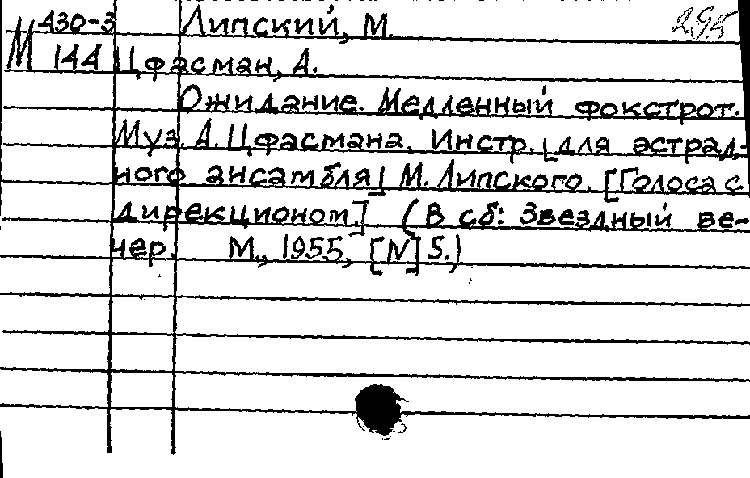 430-3 Липский, М. 295
М 144 Цфасман, А.
Ожидание. Медленный фокстрот.
Муз. А. Цфасмана. Инстр. [для эстрад-
ного ансамбля] М. Липского. [Голоса с
дирекционом.] (В сб: Звездный ве-
чер. М., 1955, [N] 5.)